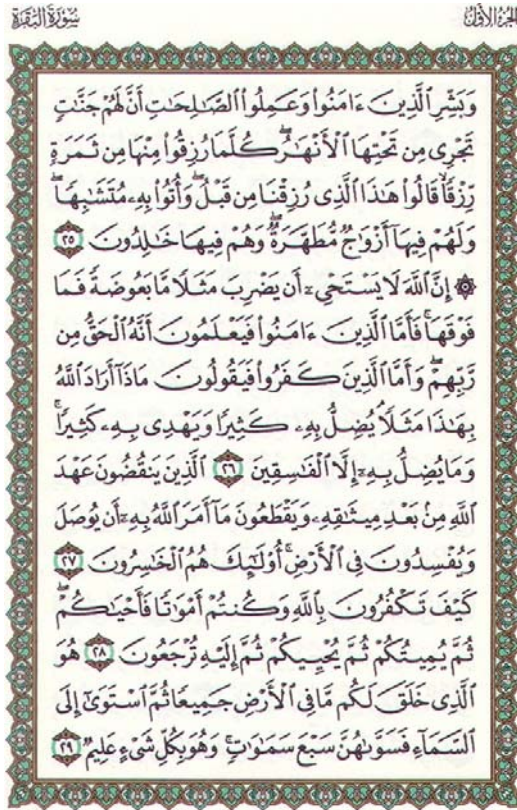 الجزء الأول
سورة البقرة
وَبَشِّرِ ٱلَّذِينَ ءَامَنُوا۟ وَعَمِلُوا۟ ٱلصَّـٰلِحَـٰتِ أَنَّ لَهُمْ جَنَّـٰتٍ
تَجْرِى مِن تَحْتِهَا ٱلْأَنْهَـٰرُ ۖ كُلَّمَا رُزِقُوا۟ مِنْهَا مِن ثَمَرَةٍ
رِّزْقًا ۙ قَالُوا۟ هَـٰذَا ٱلَّذِى رُزِقْنَا مِن قَبْلُ ۖ وَأُتُوا۟ بِهِۦ مُتَشَـٰبِهًا ۖ
وَلَهُمْ فِيهَآ أَزْوَٰجٌ مُّطَهَّرَةٌ ۖ وَهُمْ فِيهَا خَـٰلِدُونَ ٢٥
۞ إِنَّ ٱللَّهَ لَا يَسْتَحْىِۦٓ أَن يَضْرِبَ مَثَلًا مَّا بَعُوضَةً فَمَا
فَوْقَهَا ۚ فَأَمَّا ٱلَّذِينَ ءَامَنُوا۟ فَيَعْلَمُونَ أَنَّهُ ٱلْحَقُّ مِن
رَّبِّهِمْ ۖ وَأَمَّا ٱلَّذِينَ كَفَرُوا۟ فَيَقُولُونَ مَاذَآ أَرَادَ ٱللَّهُ
بِهَـٰذَا مَثَلًا ۘ يُضِلُّ بِهِۦ كَثِيرًا وَيَهْدِى بِهِۦ كَثِيرًا ۚ
وَمَا يُضِلُّ بِهِۦٓ إِلَّا ٱلْفَـٰسِقِينَ ٢٦ ٱلَّذِينَ يَنقُضُونَ عَهْدَ
ٱللَّهِ مِنۢ بَعْدِ مِيثَـٰقِهِۦ وَيَقْطَعُونَ مَآ أَمَرَ ٱللَّهُ بِهِۦٓ أَن يُوصَلَ
وَيُفْسِدُونَ فِى ٱلْأَرْضِ ۚ أُو۟لَـٰٓئِكَ هُمُ ٱلْخَـٰسِرُونَ ٢٧
كَيْفَ تَكْفُرُونَ بِٱللَّهِ وَكُنتُمْ أَمْوَٰتًا فَأَحْيَـٰكُمْ ۖ
ثُمَّ يُمِيتُكُمْ ثُمَّ يُحْيِيكُمْ ثُمَّ إِلَيْهِ تُرْجَعُونَ ٢٨ هُوَ
ٱلَّذِى خَلَقَ لَكُم مَّا فِى ٱلْأَرْضِ جَمِيعًا ثُمَّ ٱسْتَوَىٰٓ إِلَى
ٱلسَّمَآءِ فَسَوَّىٰهُنَّ سَبْعَ سَمَـٰوَٰتٍ ۚ وَهُوَ بِكُلِّ شَىْءٍ عَلِيمٌ ٢٩